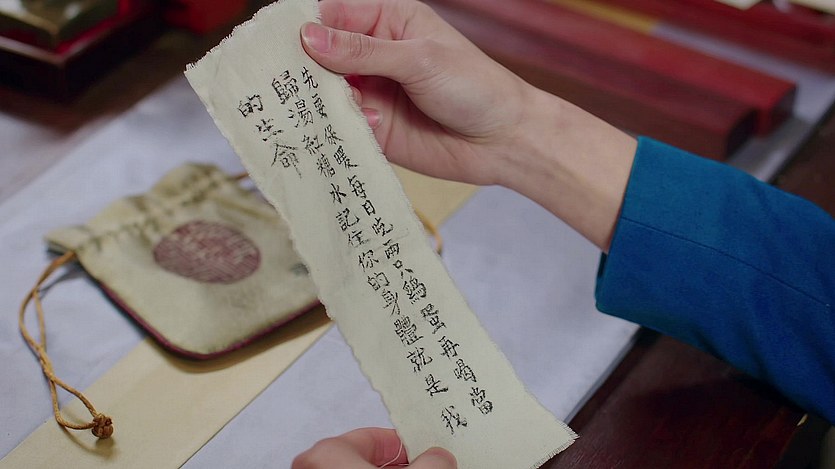 先要保暖每日吃兩只鷄蛋再喝當
歸湯紅糖水記住你的身體就是我
的生命